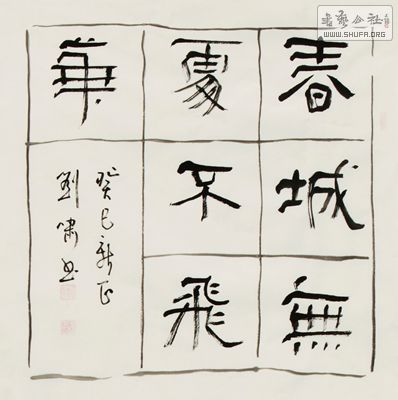 春城無
處不飛
華
癸巳新正
劉嘯書
書藝公社
WWW.SHUFA.ORG